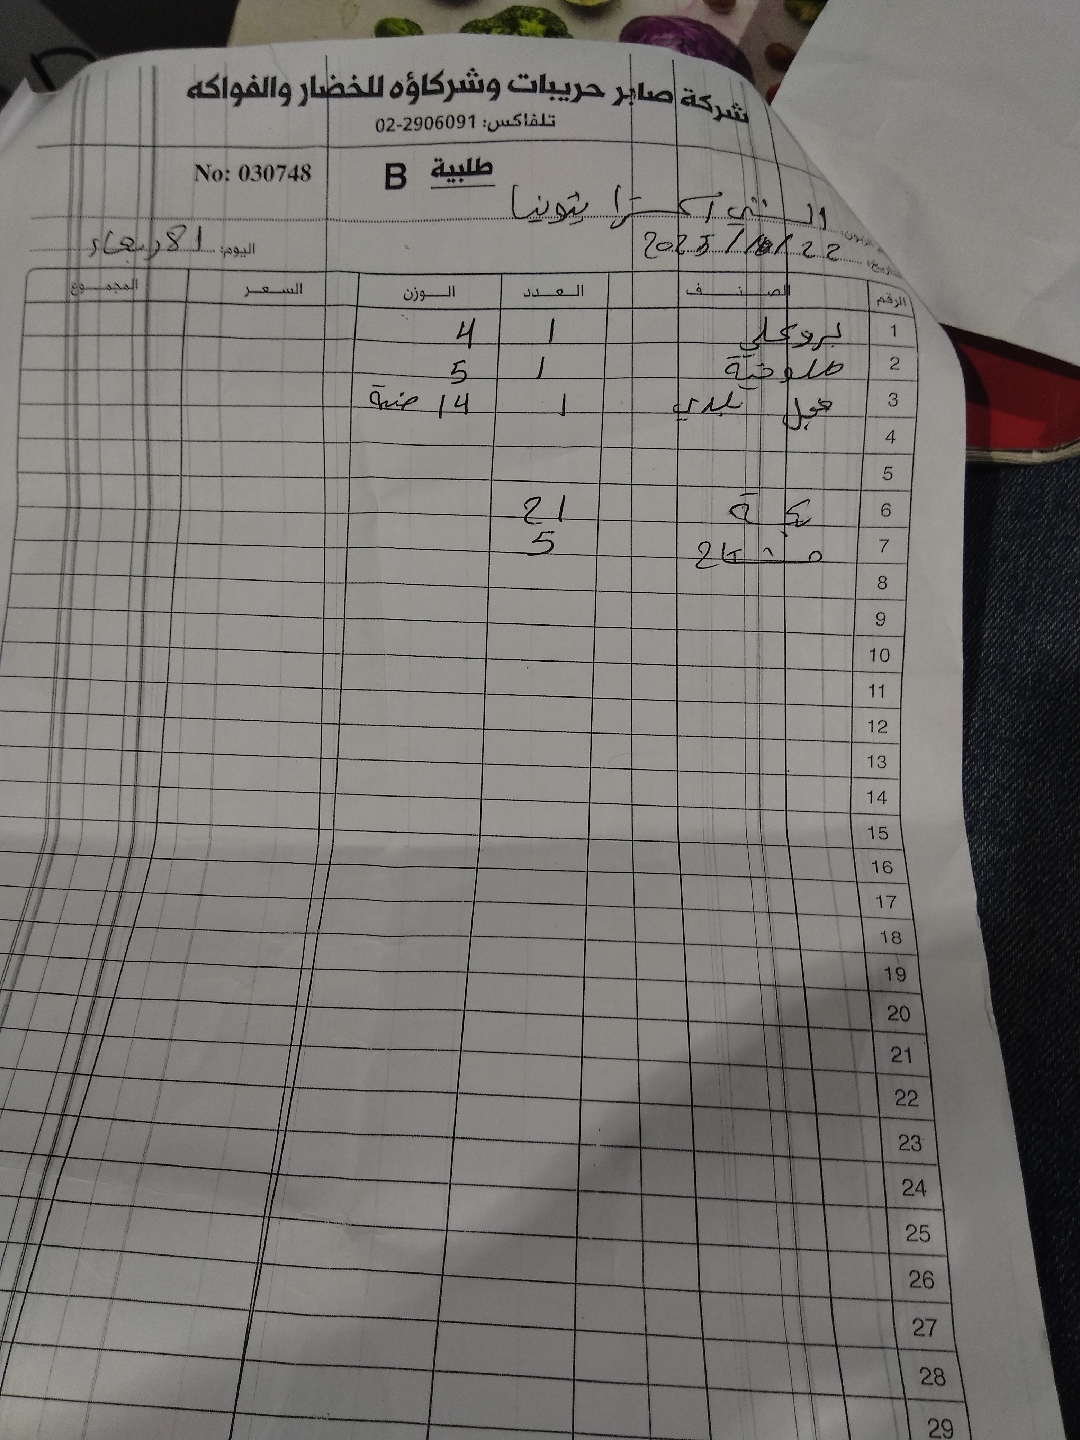 شركة صابر حريبات وشركاؤه للخضار والفواكه
تلفاكس: 02-2906091
No: 030748 B طلبية
السنتي اكسترا يتونيا
22/10/2025 اليوم: الاربعاء
الرقم الصنف العدد الوزن السعر المجموع
1 بروكلي 1 4
2 ملوخية 1 5
3 فجل بلدي 1 14 ضمة
4
5
6 21
7 مشتاح 5
8
9
10
11
12
13
14
15
16
17
18
19
20
21
22
23
24
25
26
27
28
29